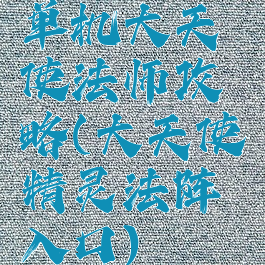 单机大天
使法师攻
略(大天使
精灵法阵
入口)